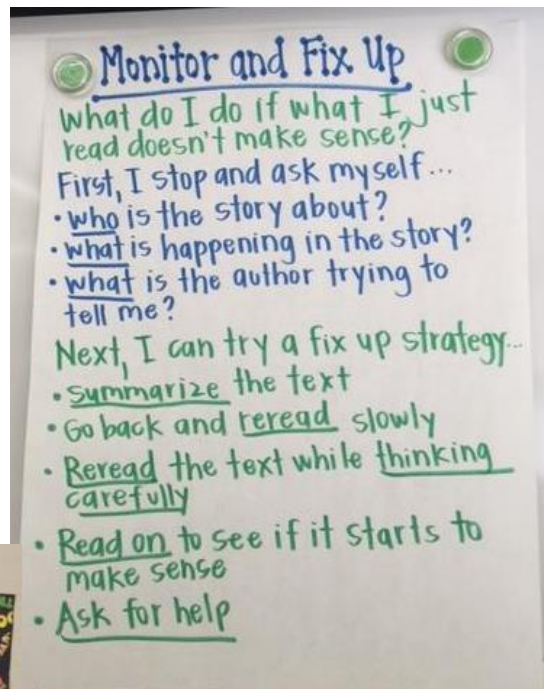 Monitor and Fix Up
What do I do if what I just
read doesn't make sense?
First, I stop and ask myself...
• who is the story about?
• what is happening in the story?
• what is the author trying to
tell me?
Next, I can try a fix up strategy...
• summarize the text
• Go back and reread slowly
• Reread the text while thinking
carefully
• Read on to see if it starts to
make sense
• Ask for help